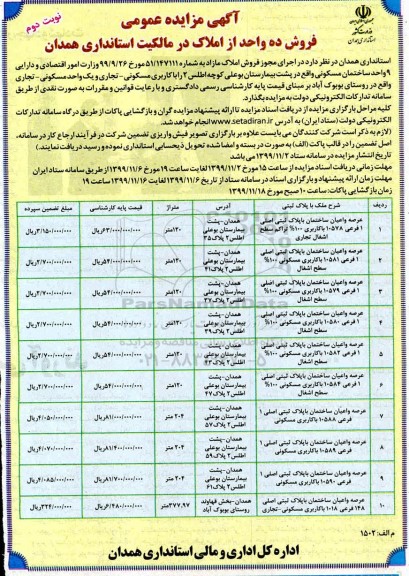 نوبت دوم
آگهی مزایده عمومی
فروش ده واحد از املاک در مالکیت استانداری همدان
استانداری همدان
استانداری همدان در نظر دارد در اجرای مجوز فروش املاک مازاد به شماره ۵۱/۱۴۷۱۱۱ مورخ ۹۹/۹/۲۶ وزارت امور اقتصادی و دارایی
۹ واحد ساختمان مسکونی واقع در پشت بیمارستان بوعلی کوچه اطلس ۲ را با کاربری مسکونی - تجاری و یک واحد مسکونی - تجاری
واقع در روستای بویوک آباد بر مبنای قیمت پایه کارشناسی رسمی دادگستری و با رعایت قوانین و مقررات به صورت نقدی از طریق
سامانه تدارکات الکترونیکی دولت به مزایده بگذارد.
کلیه مراحل برگزاری مزایده از دریافت اسناد مزایده تا ارائه پیشنهاد مزایده گران و بازگشایی پاکات از طریق درگاه سامانه تدارکات
الکترونیکی دولت (ستاد ایران) به آدرس www.setadiran.ir انجام خواهد شد.
(لازم به ذکر است شرکت کنندگان می بایست علاوه بر بارگزاری تصویر فیش واریزی تضمین شرکت در فرآیند ارجاع کار در سامانه،
اصل تضمین را در قالب پاکت (الف) به صورت در بسته و امضا شده تحویل ذیحسابی استانداری نموده و رسید دریافت نمایند.)
تاریخ انتشار مزایده در سامانه ستاد ۱۳۹۹/۱۱/۲ می باشد
مهلت زمانی دریافت اسناد مزایده از ساعت ۱۵ مورخ ۱۳۹۹/۱۱/۲ لغایت ساعت ۱۹ مورخ ۱۳۹۹/۱۱/۶ از طریق سامانه ستاد ایران
مهلت زمان ارائه پیشنهاد و بارگزاری اسناد در سامانه ستاد از تاریخ ۱۳۹۹/۱۱/۶ لغایت ۱۳۹۹/۱۱/۱۶ ساعت ۱۹
زمان بازگشایی پاکات: ساعت ۱۰ صبح مورخ ۱۳۹۹/۱۱/۱۸
ردیف شرح ملک با پلاک ثبتی آدرس متراژ قیمت پایه کارشناسی مبلغ تضمین سپرده
۱ عرصه واعیان ساختمان باپلاک ثبتی اصلی ۱ فرعی ۱۰۵۷۸ باکاربری ۱۰۰٪ تراکم سطح اشغال تجاری همدان-پشت بیمارستان بوعلی اطلس۲ پلاک۳۵ ۱۲۰متر ۶۳/۰۰۰/۰۰۰/۰۰۰ریال ۳/۱۵۰/۰۰۰/۰۰۰ریال
۲ عرصه واعیان ساختمان باپلاک ثبتی اصلی ۱ فرعی ۱۰۵۸۱ باکاربری مسکونی ۱۰۰٪ سطح اشغال همدان-پشت بیمارستان بوعلی اطلس۲ پلاک۴۱ ۱۲۰متر ۵۴/۰۰۰/۰۰۰/۰۰۰ریال ۲/۷۰۰/۰۰۰/۰۰۰ریال
۳ عرصه واعیان ساختمان باپلاک ثبتی اصلی ۱ فرعی ۱۰۵۷۹ باکاربری مسکونی ۱۰۰٪ سطح اشغال همدان-پشت بیمارستان بوعلی اطلس۲ پلاک۳۷ ۱۲۰متر ۵۴/۰۰۰/۰۰۰/۰۰۰ریال ۲/۷۰۰/۰۰۰/۰۰۰ریال
۴ عرصه واعیان ساختمان باپلاک ثبتی اصلی ۱ فرعی ۱۰۵۸۰ باکاربری مسکونی ۱۰۰٪ سطح اشغال همدان-پشت بیمارستان بوعلی اطلس۲ پلاک۳۹ ۱۲۰متر ۵۴/۰۰۰/۰۰۰/۰۰۰ریال ۲/۷۰۰/۰۰۰/۰۰۰ریال
۵ عرصه واعیان ساختمان باپلاک ثبتی اصلی ۱ فرعی باکاربری مسکونی ۱۰۰٪ سطح اشغال همدان-پشت بیمارستان بوعلی اطلس۲ پلاک۴۳ ۱۲۰متر ۵۴/۰۰۰/۰۰۰/۰۰۰ریال ۲/۷۰۰/۰۰۰/۰۰۰ریال
۶ عرصه واعیان ساختمان باپلاک ثبتی اصلی ۱ فرعی ۱۰۵۸۴ باکاربری مسکونی ۱۰۰٪ سطح اشغال همدان-پشت بیمارستان بوعلی اطلس۲ پلاک۴۷ ۱۲۰متر ۵۴/۰۰۰/۰۰۰/۰۰۰ریال ۲/۷۰۰/۰۰۰/۰۰۰ریال
۷ عرصه واعیان ساختمان باپلاک ثبتی اصلی ۱ فرعی ۱۰۵۸۸ باکاربری مسکونی همدان-پشت بیمارستان بوعلی اطلس۲ پلاک۵۷ ۲۰۴ متر ۸۱/۰۰۰/۰۰۰/۰۰۰ریال ۴/۰۵۰/۰۰۰/۰۰۰ریال
۸ عرصه واعیان ساختمان باپلاک ثبتی اصلی ۱ فرعی ۱۰۵۸۹ باکاربری مسکونی همدان-پشت بیمارستان بوعلی اطلس۲ پلاک۵۹ ۲۰۴ متر ۸۱/۴۰۰/۰۰۰/۰۰۰ریال ۴/۰۷۰/۰۰۰/۰۰۰ریال
۹ عرصه واعیان ساختمان باپلاک ثبتی اصلی ۱ فرعی ۱۰۵۹۰ باکاربری مسکونی همدان-پشت بیمارستان بوعلی اطلس۲ پلاک۶۱ ۲۰۴ متر ۸۱/۷۰۰/۰۰۰/۰۰۰ریال ۴/۰۸۵/۰۰۰/۰۰۰ریال
۱۰ عرصه واعیان ساختمان باپلاک ثبتی اصلی ۱۴۸ فرعی ۱۰۱۸ باکاربری مسکونی-تجاری همدان-بخش قهاوند روستای بویوک آباد ۳۷۷.۹۷متر ۶/۴۸۰/۰۰۰/۰۰۰ریال ۳۲۴/۰۰۰/۰۰۰ریال
م الف: ۱۵۰۲
اداره کل اداری و مالی استانداری همدان